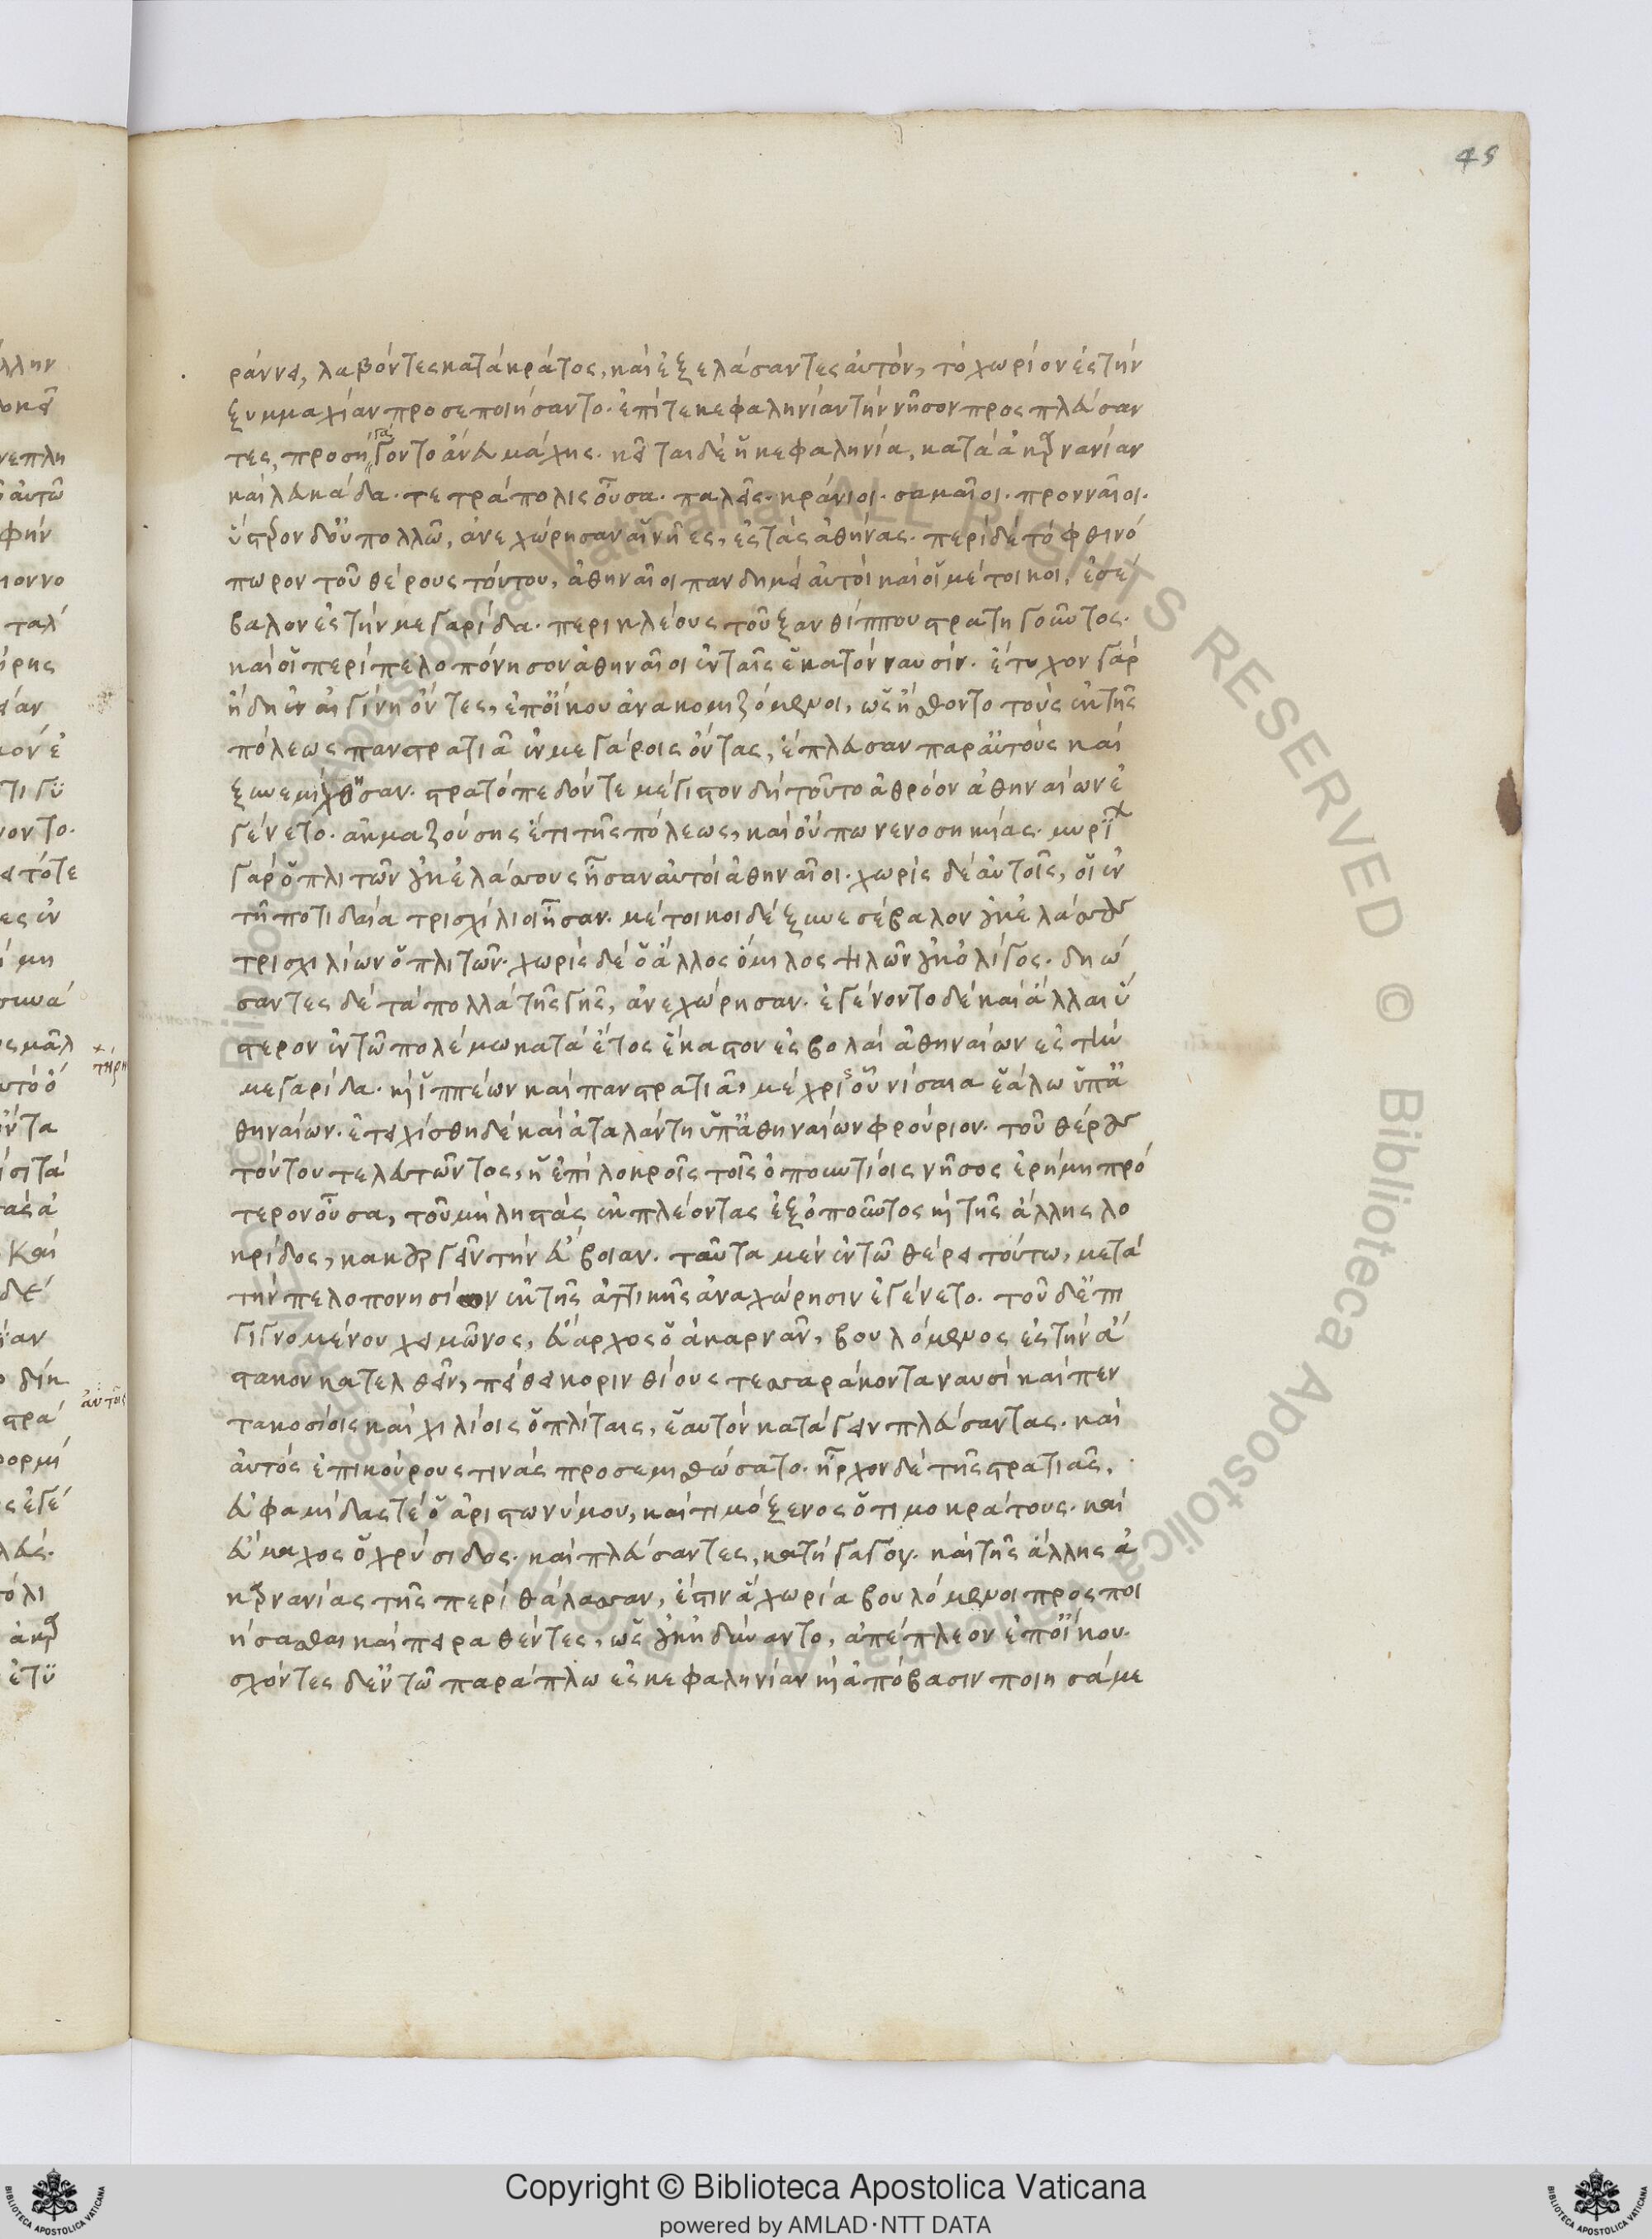 45
ράννει, λαβόντες κατά κράτος, και ἐξελάσαντες ἀυτόν, τό χωρίον ἐς τήν
ξυμμαχίαν προσεποιήσαντο. ἐπί τε κεφαληνίαν τήν νῆσον προσπλεύσαν
τες, προσηγάγοντο ἄνευ μάχης. κεῖται δέ ἡ κεφαληνία, κατά ἀκαρνανίαν
καί λευκάδα. τετράπολις οὖσα. παλεῖς. κράνιοι. σαμαῖοι. προνναῖοι.
ὕστερον δ' οὐ πολλῶ, ἀνεχώρησαν αἱ νῆες, ἐς τάς ἀθήνας. περί δέ τό φθινό
πωρον τοῦ θέρους τούτου, ἀθηναῖοι πανδημεί ἀυτοί καί οἱ μέτοικοι, ἐσέ
βαλον ἐς τήν μεγαρίδα. περικλέους τοῦ ξανθίππου στρατηγοῦντος.
καί οἱ περί πελοπόνησον ἀθηναῖοι ἐν ταῖς ἑκατόν ναυσίν. ἔτυχον γάρ
ἤδη ἐν αἰγίνη ὄντες, ἐπ' οἴκου ἀνακομιζόμενοι, ὡς ἤσθοντο τούς ἐκ τῆς
πόλεως πανστρατιᾶ ἐν μεγάροις ὄντας, ἔπλευσαν παρ' αὐτούς καί
ξυνεμίχθησαν. στρατόπεδόν τε μέγιστον δή τοῦτο ἀθρόον ἀθηναίων ἐ
γένετο. ἀκμαζούσης ἔτι τῆς πόλεως, καί οὔπω νενοσηκυίας. μυρίων
γάρ ὁπλιτῶν οὐκ ἐλάσσους ἦσαν ἀυτοί ἀθηναῖοι. χωρίς δέ ἀυτοῖς, οἱ ἐν
τῆ ποτιδαία τρισχίλιοι ἦσαν. μέτοικοι δέ ξυνεσέβαλον οὐκ ἐλάσσους
τρισχιλίων ὁπλιτῶν. χωρίς δέ ὁ ἄλλος ὅμιλος ψιλῶν οὐκ ὀλίγος. δηώ
σαντες δέ τά πολλά τῆς γῆς, ἀνεχώρησαν. ἐγένοντο δέ καί ἄλλαι ὕ
στερον ἐν τῶ πολέμω κατά ἔτος ἕκαστον ἐσβολαί ἀθηναίων ἐς τήν
μεγαρίδα. καί ἱππέων καί πανστρατιᾶ, μέχρις οὗ νίσαια ἑάλω ὑπ' ἀ
θηναίων. ἐτειχίσθη δέ καί ἀταλάντη ὑπ' ἀθηναίων φρούριον. τοῦ θέρους
τούτου τελευτῶντος, ἡ ἐπί λοκροῖς τοῖς ὀπουντίοις νῆσος ἐρήμη πρό
τερον οὖσα, τοῦ μή ληστάς ἐκπλέοντας ἐξ ὀποῦντος καί τῆς ἄλλης λο
κρίδος, κακουργεῖν τήν εὔβοιαν. ταῦτα μέν ἐν τῶ θέρει τούτω, μετά
τήν πελοπονησίων ἐκ τῆς ἀττικῆς ἀναχώρησιν ἐγένετο. τοῦ δ' ἐπι
γιγνομένου χειμῶνος, εὔαρχος ὁ ἀκαρνάν, βουλόμενος ἐς τήν ἀ
στακον κατελθεῖν, πείθει κορινθίους τεσσαράκοντα ναυσί καί πεν
τακοσίοις καί χιλίοις ὁπλίταις, ἑαυτόν κατάγειν πλεύσαντας. καί
ἀυτός ἐπικούρους τινάς προσεμισθώσατο. ἦρχον δέ τῆς στρατιᾶς,
εὐφαμίδας τέ ὁ ἀριστωνύμου, καί τιμόξενος ὁ τιμοκράτους. καί
εὔμαχος ὁ χρύσιδος. καί πλεύσαντες, κατήγαγον. καί τῆς ἄλλης ἀ
καρνανίας τῆς περί θάλασσαν, ἔστιν ἅ χωρία βουλόμενοι προσποι
ήσασθαι καί πειραθέντες, ὡς οὐκ ἠδύναντο, ἀπέπλεον ἐπ' οἴκου.
σχόντες δ' ἐν τῶ παράπλω ἐς κεφαληνίαν καί ἀπόβασιν ποιησάμε
Copyright © Biblioteca Apostolica Vaticana
powered by AMLAD·NTT DATA